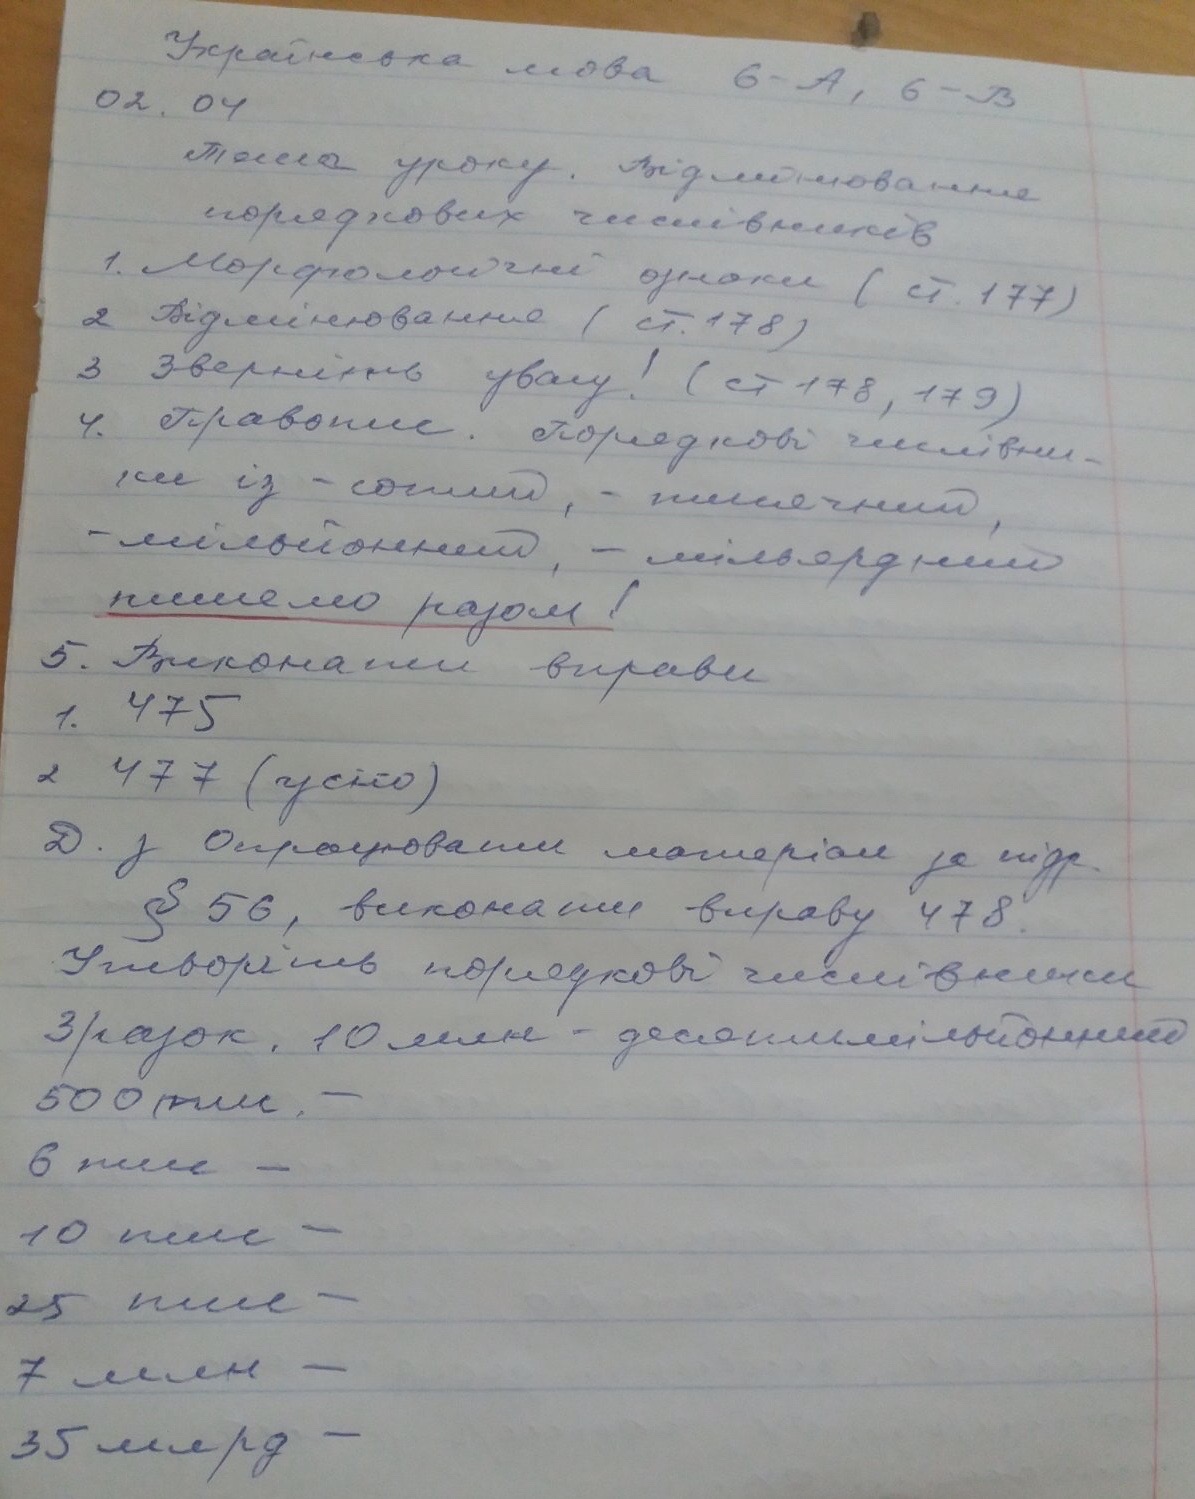 Українська мова 6-А, 6-В
02. 04
Тема уроку. Відмінювання
порядкових числівників
1. Морфологічні ознаки (ст. 177)
2 Відмінювання (ст. 178)
3 Зверніть увагу! (ст 178, 179)
4. Правопис. Порядкові числівни-
ки із -сотий, -тисячний,
-мільйонний, -мільярдний
пишемо разом!
5. Виконати вправи
1. 475
2 477 (усно)
Д. з Опрацювати матеріал за підр.
§ 56, виконати вправу 478.
Утворіть порядкові числівники
Зразок. 10 млн - десятимільйонний
500 тис. -
6 тис -
10 тис -
25 тис -
7 млн -
35 млрд -